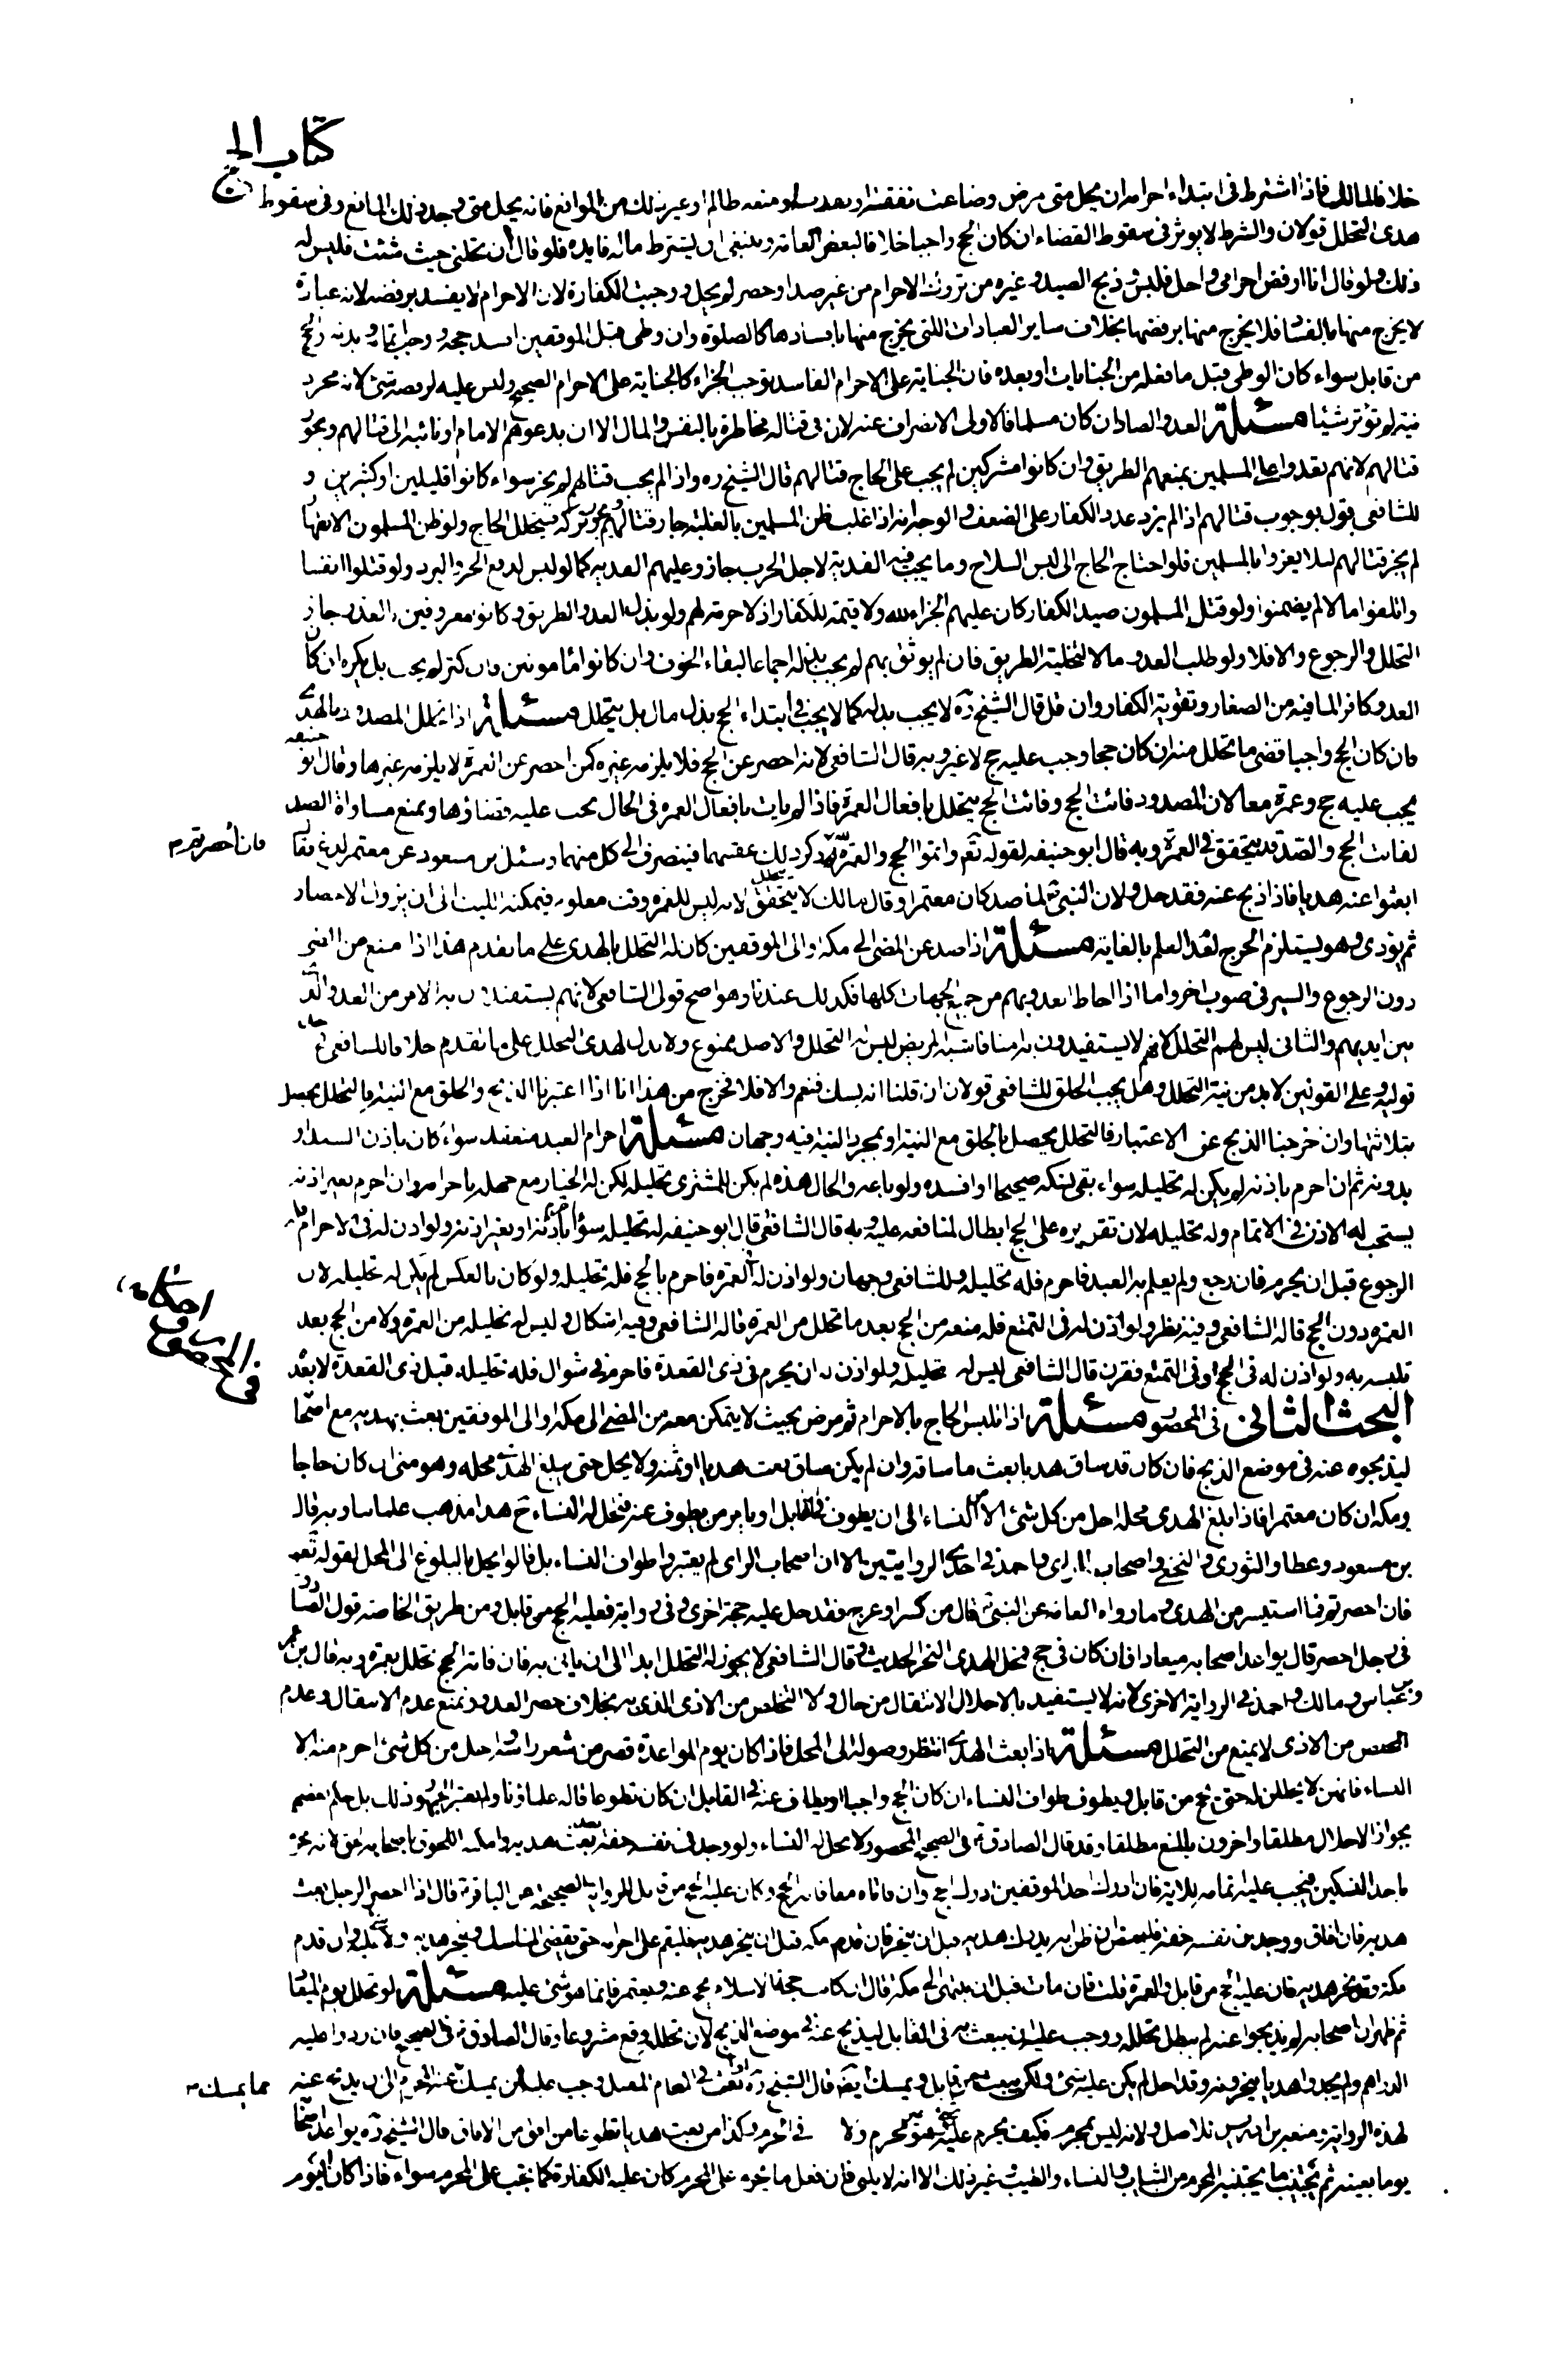 كتاب الحج
خلافا لمالك فاذا اشترط فى ابتداء احرامه ان يحل متى مرض وضاعت نفقته او نفدت او منعه ظالم او غير ذلك من الموانع فانه يحل متى وجد ذلك المانع وفى سقوط
هدى التحلل قولان والشرط لا يوثر فى سقوط القضاء ان كان الحج واجبا خلافا لبعض العامة وينبغى ان يشترط ماله فايده فلو قال ان تحلنى حيث شئت فليس له
ذلك ولو قال انا ارفض احرامى واحل فلبس وذبح الصيد وغيره من تروك الاحرام من غير صد او حصر لم يحل ووجبت الكفارة لان الاحرام لا يفسد برفضه لانه عبادة
لا يخرج منها بالفساد فلا يخرج منها برفضها بخلاف ساير العبادات اللتى يخرج منها بافسادها كالصلوة وان وطى قبل الموقفين افسد حجه ووجب اتمامه وبدنه والحج
من قابل سواء كان الوطى قبل ما فعله من الجنايات او بعده فان الجناية على الاحرام الفاسد توجب الجزاء كالجناية على الاحرام الصحيح وليس عليه لرفضه شئ لانه مجرد
نية لم تؤثر شيئا مسئلة العدو الصاد ان كان مسلما فالاولى الانصراف عنه لان فى قتاله مخاطرة بالنفس والمال الا ان يدعوهم الامام او نائبه الى قتالهم ويجوز
قتالهم لانهم تعدوا على المسلمين بمنعهم الطريق وان كانوا مشركين لم يجب على الحاج قتالهم قال الشيخ ره واذا لم يجب قتالهم لم يجز سواء كانوا قليلين او كثيرين و
للشافعى قول بوجوب قتالهم اذا لم يزد عدد الكفار على الضعف والوجه انه اذا غلب ظن المسلمين بالغلبة جاز قتالهم ويجوز تركه فيتحلل الحاج ولو ظن المسلمون الانقهار
لم يجز قتالهم لئلا يغروا بالمسلمين فلو احتاج الحاج الى لبس السلاح وما يجب فيه الفدية لاجل الحرب جاز وعليهم الفديه كما لو لبس لدفع الحر والبرد ولو قتلوا انفسا
واتلفوا اموالا لم يضمنوا ولو قتل المسلمون صيد الكفار كان عليهم الجزاء لله ولا قيمة للكفار اذ لا حرمة لهم ولو بذل العدو الطريق وكانوا معروفين بالغدر جاز
التحلل والرجوع والا فلا ولو طلب العدو مالا لتخلية الطريق فان لم يوثق بهم لم يجب بذله اجماعا لبقاء الخوف وان كانوا مامونين فان كثر لم يجب بل يكره ان كان
العدو كافرا لما فيه من الصغار وتقوية الكفار وان قل قال الشيخ ره لا يجب بذله كما لا يجب فى ابتداء الحج بذل مال بل يتحلل مسئلة اذا تحلل المصدود بالهدى
فان كان الحج واجبا قضى ما تحلل منه ان كان حجا وجب عليه حج لا غير وبه قال الشافعى لانه احصر عن الحج فلا يلزمه غيره كمن احصر عن العمرة لا يلزمه غيرها وقال ابو حنيفه
يجب عليه حج وعمرة معا لان المصدود فائت الحج وفائت الحج يتحلل بافعال العمرة فاذا لم يات بافعال العمره فى الحال يجب عليه قضاؤها ونمنع مساواة الصد
لفائت الحج والصد قد يتحقق فى العمرة وبه قال ابو حنيفه لقوله تع واتموا الحج والعمرة لله ذكر ذلك عقيبهما فينصرف الى كل منهما وسئل بن مسعود عن معتمر لدغ فقال
فان أحصرتم م
ابعثوا عنه هديا فاذا ذبح عنه فقد حل ولان النبى لما صد كان معتمرا وقال مالك لا يتحقق لانه ليس للعمره وقت معلوم فيمكنه اللبث الى ان يزول الاحصار
ثم يؤدى وهو يستلزم الحرج لفقد العلم بالغاية مسئلة اذا صد عن المضى الى مكة والى الموقفين كان له التحلل بالهدى على ما تقدم هذا اذا منع من المضى
دون الرجوع والسير فى صوب اخر واما اذا احاط العدو بهم من جميع الجهات كلها فكذلك عندنا وهو اصح قولى الشافعى لانهم يستفيدون به الامن من العدو الذى
بين ايديهم والثانى ليس لهم التحلل لانهم لا يستفيدون به امنا فاشبه المريض ليس له التحلل والاصل ممنوع ولا بدل لهدى التحلل على ما تقدم خلافا للشافعى فى احد
قوليه وعلى القولين لا بد من نية التحلل وهل يجب الحلق للشافعى قولان ان قلنا انه نسك فنعم والا فلا فخرج من هذا انا اذا اعتبرنا الذبح والحلق مع النية فالتحلل يحصل
بثلاثتها وان خرجنا الذبح عن الاعتبار فالتحلل يحصل بالحلق مع النية او بمجرد النية فيه وجهان مسئلة احرام العبد منعقد سواء كان باذن السيد او
بدونه ثم ان احرم باذنه لم يكن له تحليله سواء بقى نسكه صحيحا او افسده ولو باعه والحال هذه لم يكن للمشترى تحليله لكن له الخيار مع جهله باحرامه وان احرم بغير اذنه
يستحب له الاذن فى الاتمام وله تحليله لان تقريره على الحج ابطال لمنافعه عليه وبه قال الشافعى وقال ابو حنيفه له تحليله سواء احرم باذنه او بغير اذنه ولو اذن له فى الاحرام فله
الرجوع قبل ان يحرم فان رجع ولم يعلم به العبد فاحرم فله تحليله وللشافعى وجهان ولو اذن له فى العمره فاحرم بالحج فله تحليله ولو كان بالعكس لم يكن له تحليله لان
العمره دون الحج قاله الشافعى وفيه نظر ولو اذن له فى التمتع فله منعه من الحج بعد ما تحلل من العمرة قاله الشافعى وفيه اشكال وليس له تحليله من العمرة ولا من الحج بعد
تلبسه به ولو اذن له فى الحج او فى التمتع فقرن قال الشافعى ليس له تحليله ولو اذن له ان يحرم فى ذى القعدة فاحرم فى شوال فله تحليله قبل ذى القعدة لا بعد
البحث الثانى فى المحصور مسئلة اذا تلبس الحاج بالاحرام ثم مرض بحيث لا يتمكن معه من المضى الى مكة او الى الموقفين بعث بهديه مع اصحابه
ليذبحوه عنه فى موضع الذبح فان كان قد ساق هديا بعث ما ساقه وان لم يكن ساق بعث هديا او ثمنه ولا يحل حتى يبلغ الهدى محله وهو منى ان كان حاجا
ومكه ان كان معتمرا فاذا بلغ الهدى محله احل من كل شئ الا من النساء الى ان يطوف فى القابل او يامر من يطوف عنه فتحل له النساء ح هذا مذهب علمائنا وبه قال
بن مسعود وعطا والثورى والنخعى واصحاب الراى واحمد فى احدى الروايتين الا ان اصحاب الراى لم يعتبروا طواف النساء بل قالوا يحل بالبلوغ الى المحل لقوله تعم
فان احصرتم فما استيسر من الهدى وما رواه العامه عن النبى قال من كسر او عرج فقد حل عليه حجة اخرى وفى رواية فعليه الحج من قابل ومن طريق الخاصه قول الصادق
فى رجل احصر قال يواعد اصحابه ميعادا فان كان فى حج فمحل الهدى النحر الحديث وقال الشافعى لا يجوز له التحلل ابدا الى ان ياتى به فان فاته الحج تحلل بعمرة وبه قال بن عمر
وبن عباس ومالك واحمد فى الرواية الاخرى لانه لا يستفيد بالاحلال الانتقال من حال ولا التخلص من الاذى الذى به بخلاف حصر العدو ونمنع عدم الانتقال وعدم
التخلص من الاذى لا يمنع من التحلل مسئلة اذا بعث الهدى انتظر وصوله الى المحل فاذا كان يوم المواعدة قصر من شعر راسه واحل من كل شئ احرم منه الا
النساء فانهن لا يحللن له حتى يحج من قابل ويطوف طواف النساء ان كان الحج واجبا او يطاف عنه فى القابل ان كان تطوعا قاله علماؤنا ولم يعتبر الجمهور ذلك بل حكم بعضهم
بجواز الاحلال مطلقا واخرون بالمنع مطلقا وقد قال الصادق فى الصحيح المحصور لا تحل له النساء ولو وجد فى نفسه خفة بعد بعث هديه وامكنه اللحوق باصحابه لحق لانه محرم
باحد النسكين فيجب عليه اتمامه للاية فان ادرك احد الموقفين ادرك الحج وان فاتاه معا فاته الحج وكان عليه الحج من قابل للرواية الصحيحة عن الباقر قال اذا احصر الرجل بعث
هديه فان افاق ووجد من نفسه خفة فليمض ان ظن انه يدرك هديه قبل ان ينحر فان قدم مكه قبل ان ينحر هديه فليقم على احرامه حتى يقضى المناسك وينحر هديه ولا شئ عليه وان قدم
مكة وقد نحر هديه فان عليه الحج من قابل والعمرة قلت فان مات قبل ان ينتهى الى مكة قال ان كانت حجة الاسلام يحج عنه ويعتمر فانما هو شئ عليه مسئلة لو تحلل يوم الميقات
ثم ظهر ان اصحابه لم يذبحوا عنه لم يبطل تحلله ووجب عليه ان يبعث به فى القابل ليذبح عنه فى موضع الذبح لان تحلله وقع مشروعا وقال الصادق فى الصحيح فان ردوا عليه
الدراهم ولم يجدوا هديا ينحرونه وقد احل لم يكن عليه شئ ولكن يبعث من قابل ويمسك ايضا قال الشيخ ره اذا بعث فى العام المقبل وجب عليه ان يمسك الى ان يذبح عنه
مما يمسك م
لهذه الرواية ومنعه بن ادريس للاصل ولانه ليس بمحرم فكيف يحرم عليه شئ وهو ليس بمحرم ولا فى الحرم وكذا من بعث هديا تطوعا من افق من الافاق قال الشيخ ره يواعد اصحابه
يوما بعينه ثم يجتنب ما يجتنبه المحرم من الثياب والنساء والطيب وغير ذلك الا انه لا يلبى فان فعل ما يحرم على المحرم كان عليه الكفارة كما تجب على المحرم سواء فاذا كان اليوم
فى المحصور
احكام